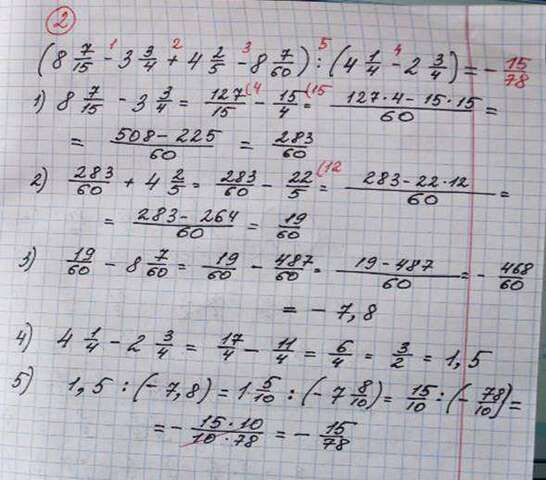 2
(8 7/15 - 3 3/4 + 4 2/5 - 8 7/60) : (4 1/4 - 2 3/4) = - 15/78
1 2 3 5 4
1) 8 7/15 - 3 3/4 = 127/15 (4 - 15/4 (15 = 127·4 - 15·15/60 =
= 508 - 225/60 = 283/60
2) 283/60 + 4 2/5 = 283/60 - 22/5 (12 = 283 - 22·12/60 =
= 283 - 264/60 = 19/60
3) 19/60 - 8 7/60 = 19/60 - 487/60 = 19 - 487/60 = - 468/60
= - 7,8
4) 4 1/4 - 2 3/4 = 17/4 - 11/4 = 6/4 = 3/2 = 1,5
5) 1,5 : (- 7,8) = 1 5/10 : (- 7 8/10) = 15/10 : (- 78/10) =
= - 15·10/10·78 = - 15/78